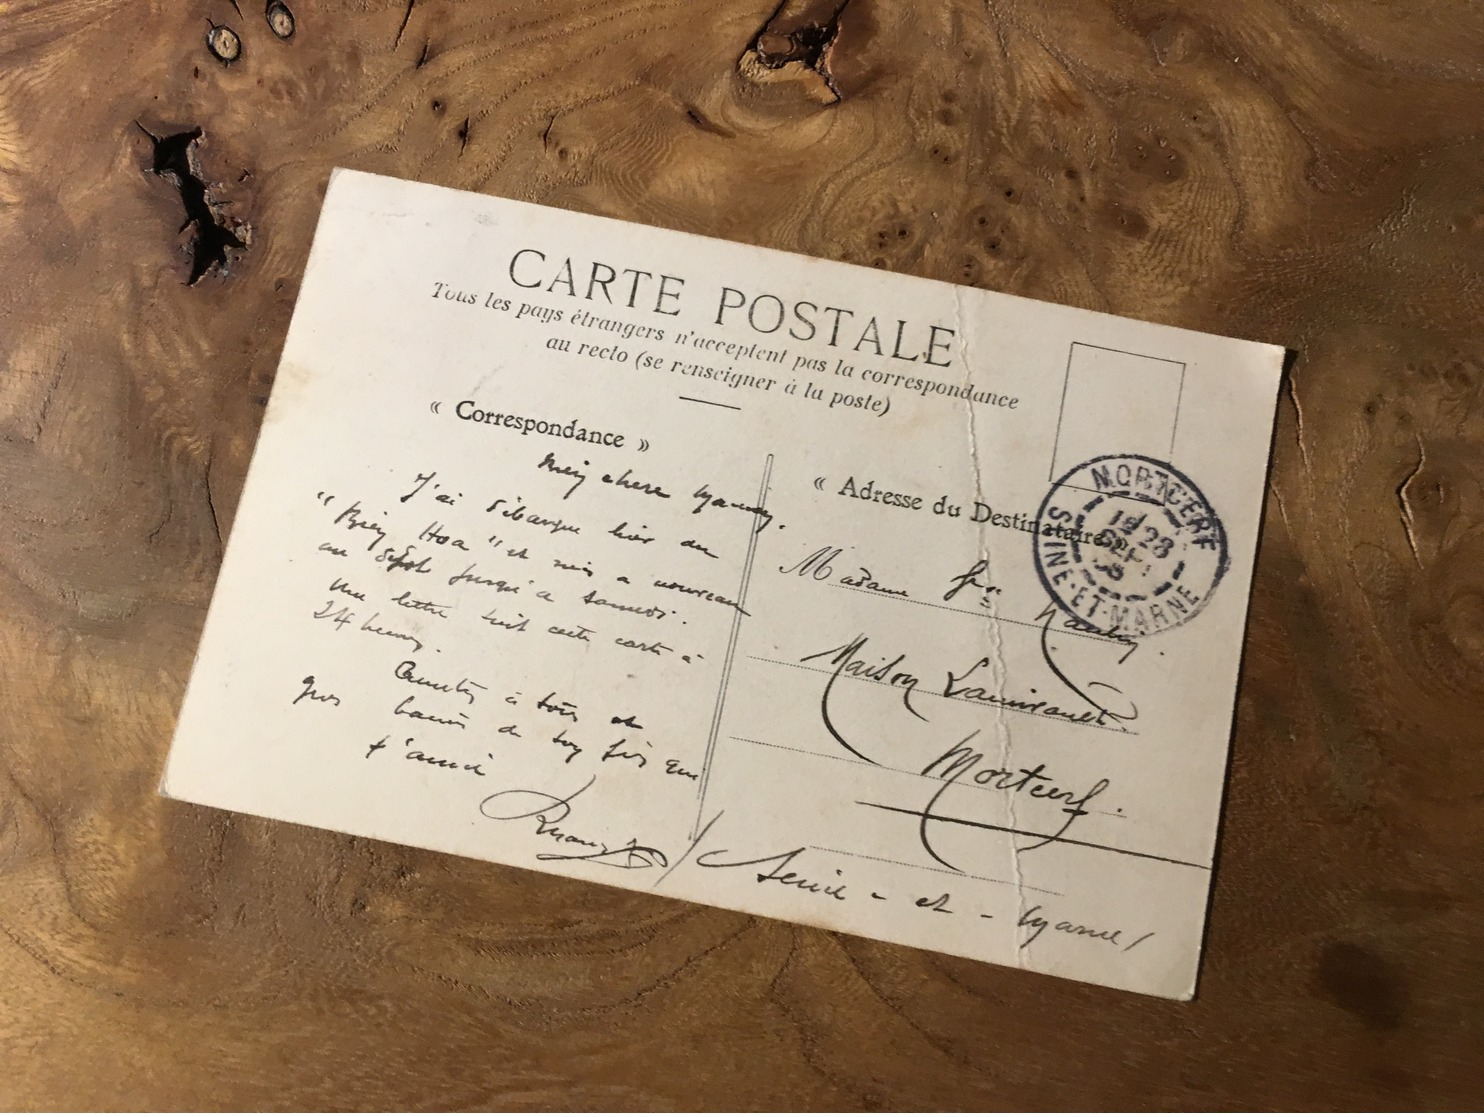 CARTE POSTALE
Tous les pays étrangers n'acceptent pas la correspondance
au recto (se renseigner à la poste)
« Correspondance »
chere
J'ai débarqué hier du
"Bien Hoa" et suis a nouveau
au Dépôt jusqu'a samedi.
une lettre suit cette carte à
24 heures.
Amitiés à tous et
gros de ton fils qui
t'aime
« Adresse du Destinataire »
Madame
Maison
Mortcerf.
Seine-et-Marne/
MORTCERF
SEINE-ET-MARNE